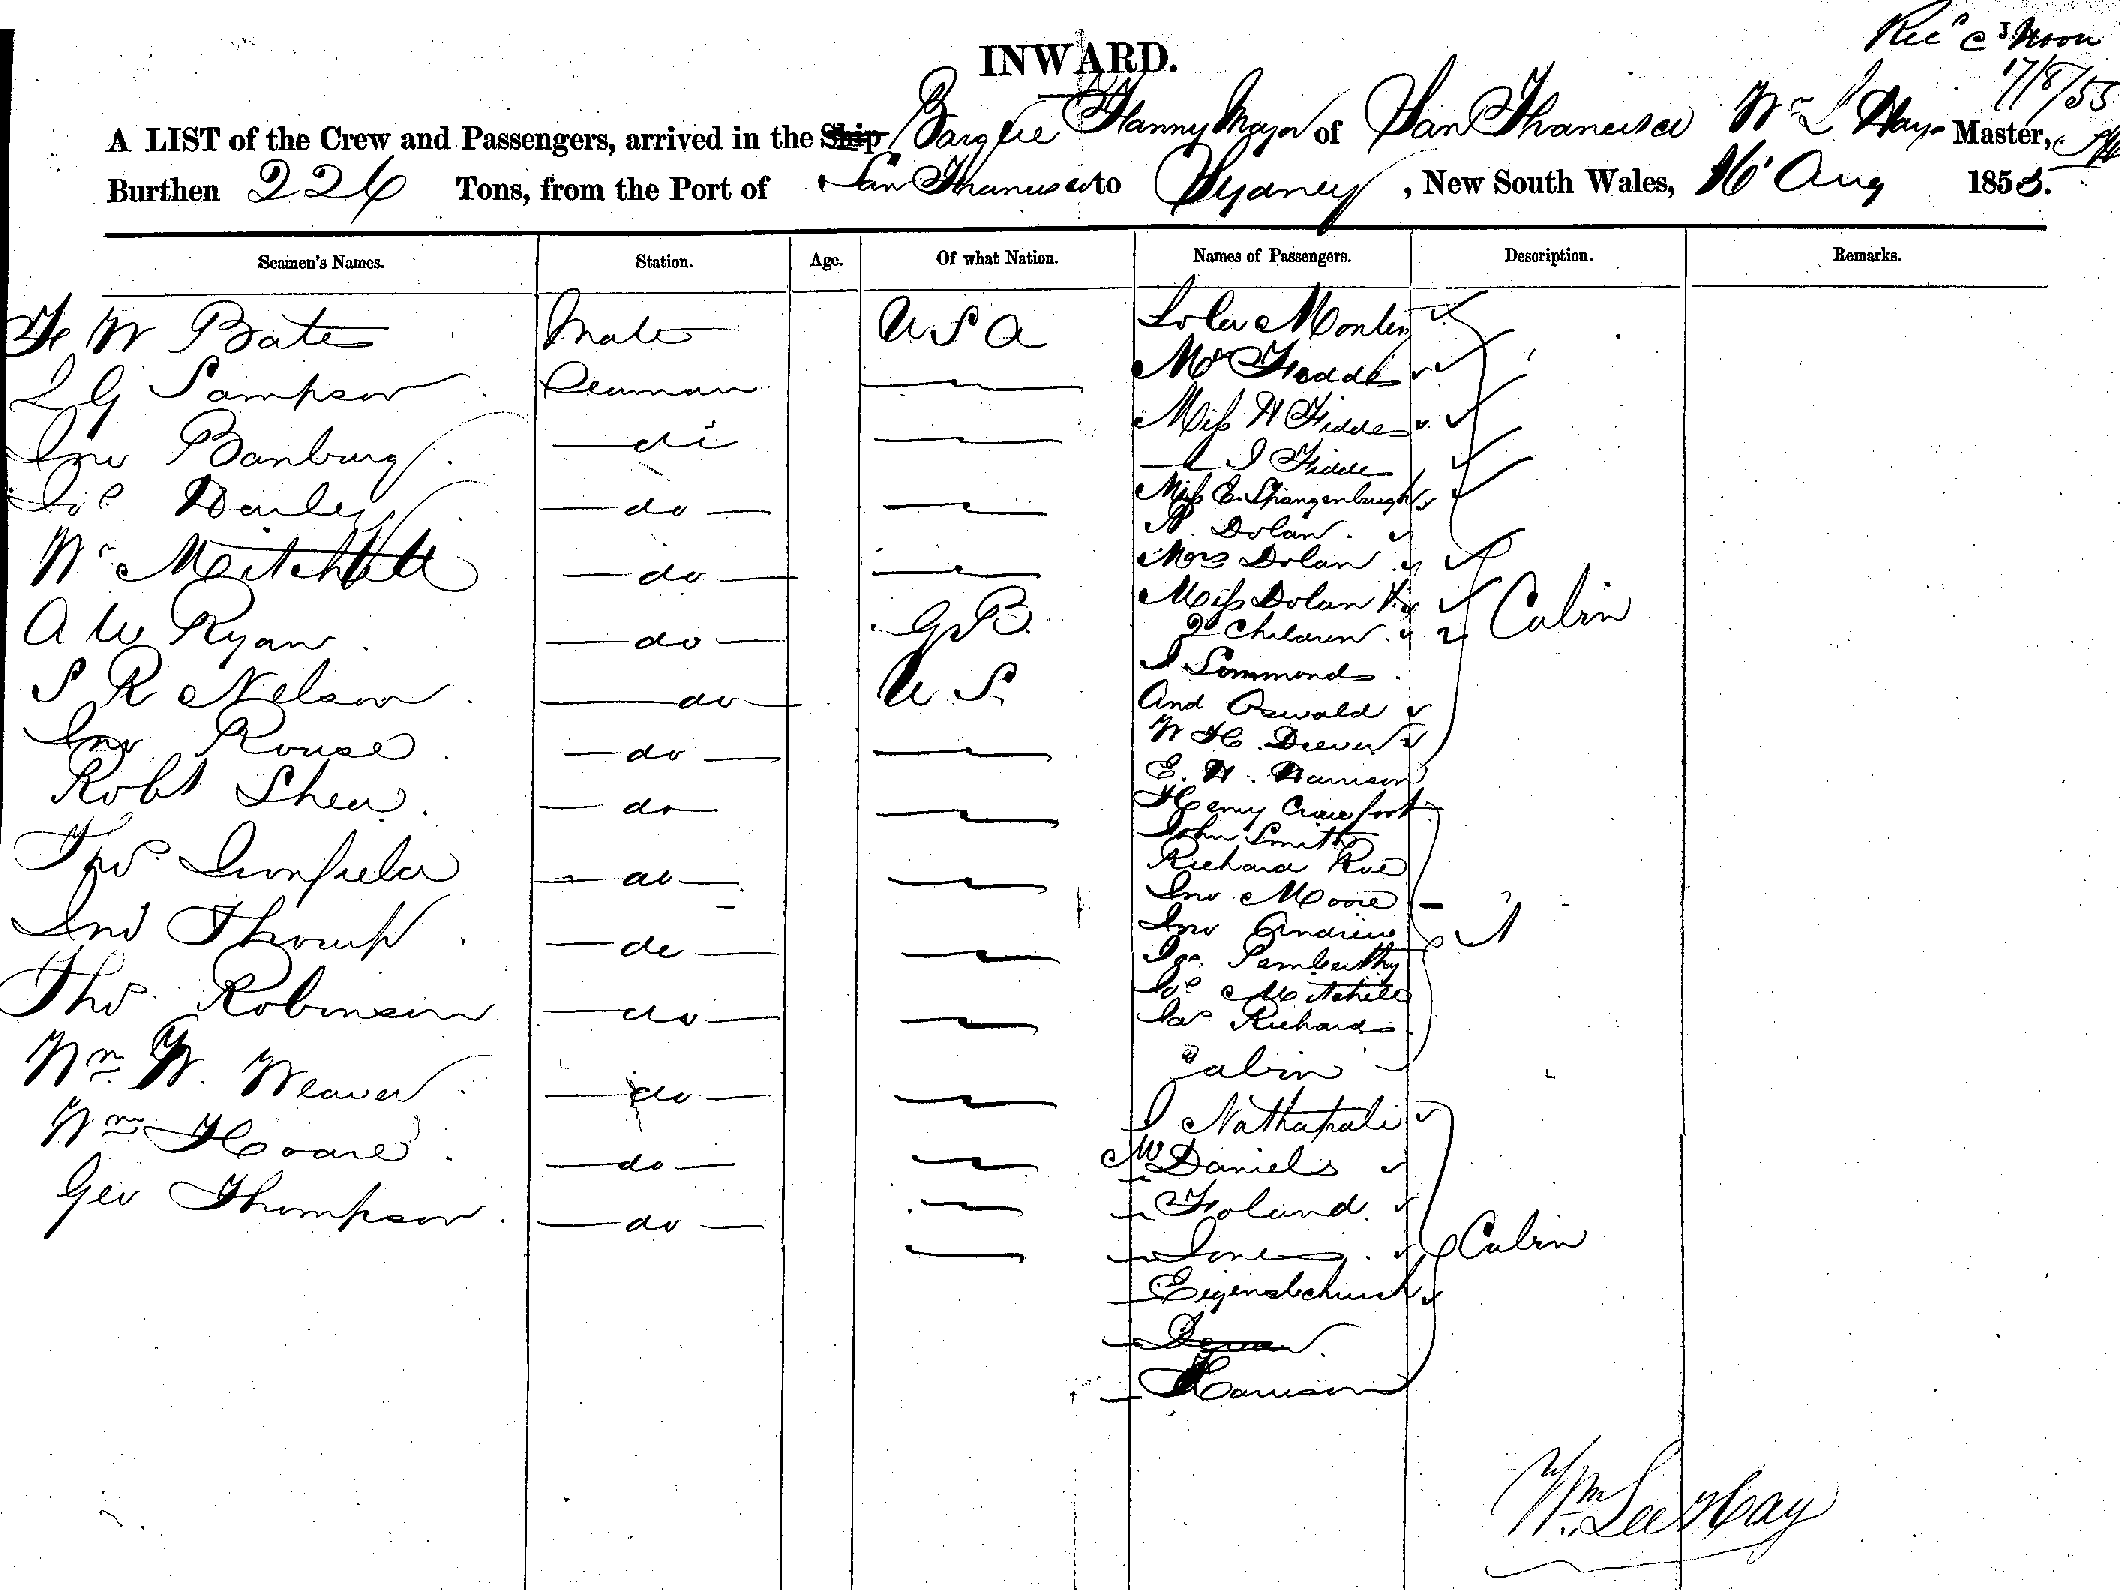 Recd Noon
17/8/55
INWARD.
A LIST of the Crew and Passengers, arrived in the Ship Barque Fanny Major of San Francisco Wm L Hays Master,
Burthen 226 Tons, from the Port of San Francisco to Sydney, New South Wales, 16 Aug 1855.
Seamen's Names. Station. Age. Of what Nation. Names of Passengers. Description. Remarks.
W Bates Mate U S A
L G Sampson Seaman
Jno Banbury do
Jos Harley do
Wm Mitchell do
A W Ryan do G B
S R Nelson do U S
Jno Rouse do
Robt Shea do
Thos do
Jno do
Thos Robinson do
Wm W. Weaver do
Wm Hoare do
Geo Thompson do
Lola Montez
Mr
Miss H Fiddes
J Fiddes
Miss E. Spangenburgh
N. Dolan
Mrs Dolan
Miss Dolan
2 Children 2 Cabin
J Simmonds
And Oswald
W H Drever
E. H. Harrison
Henry Crawfoot
John Smith
Richard Roe
Jno Moore
Jno Andrew
Penberthy
Jos Mitchell
Jas Richards
Cabin
J Nathapali
Mr Daniels
Foland
Jones Cabin
Harrison
Wm Lee Hay